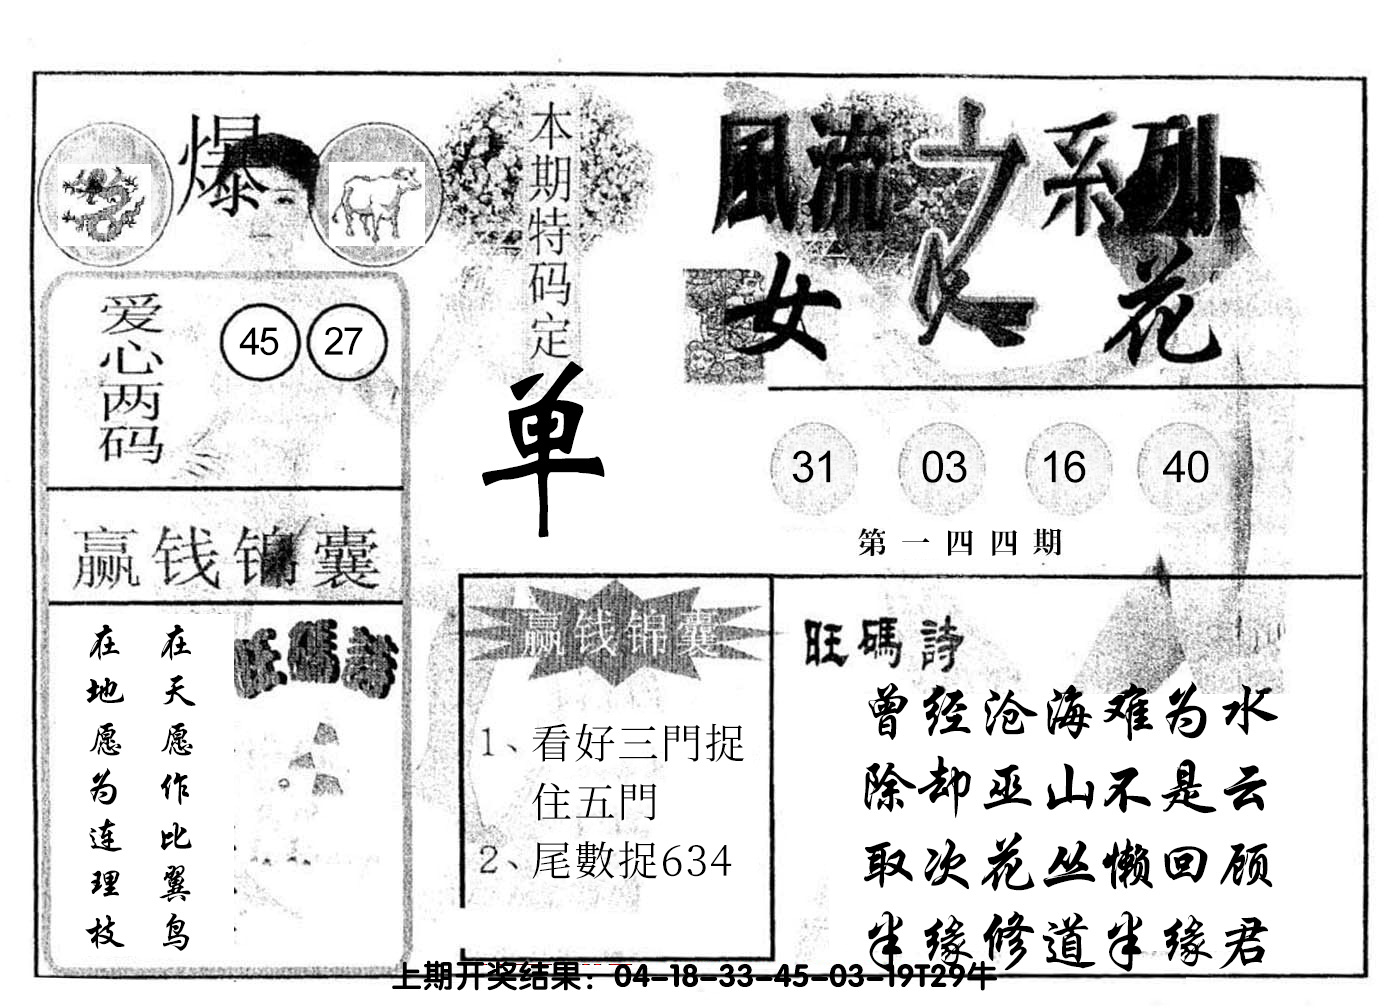 爆
爱心两码
45 27
赢钱锦囊
在天愿作比翼鸟
在地愿为连理枝
旺碼詩
本期特码定
单
風流之系列
女人花
31 03 16 40
第一四四期
赢钱锦囊
1、看好三門捉
住五門
2、尾數捉634
旺碼詩
曾经沧海难为水
除却巫山不是云
取次花丛懒回顾
半缘修道半缘君
上期开奖结果：04-18-33-45-03-19T29牛